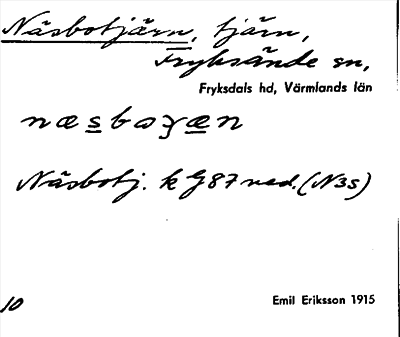 Näsbotjärn, tjärn,
Fryksände sn,
Fryksdals hd, Värmlands län
næsboʒæn
Näsbotj. k G87 ned. (N3S)
10
Emil Eriksson 1915